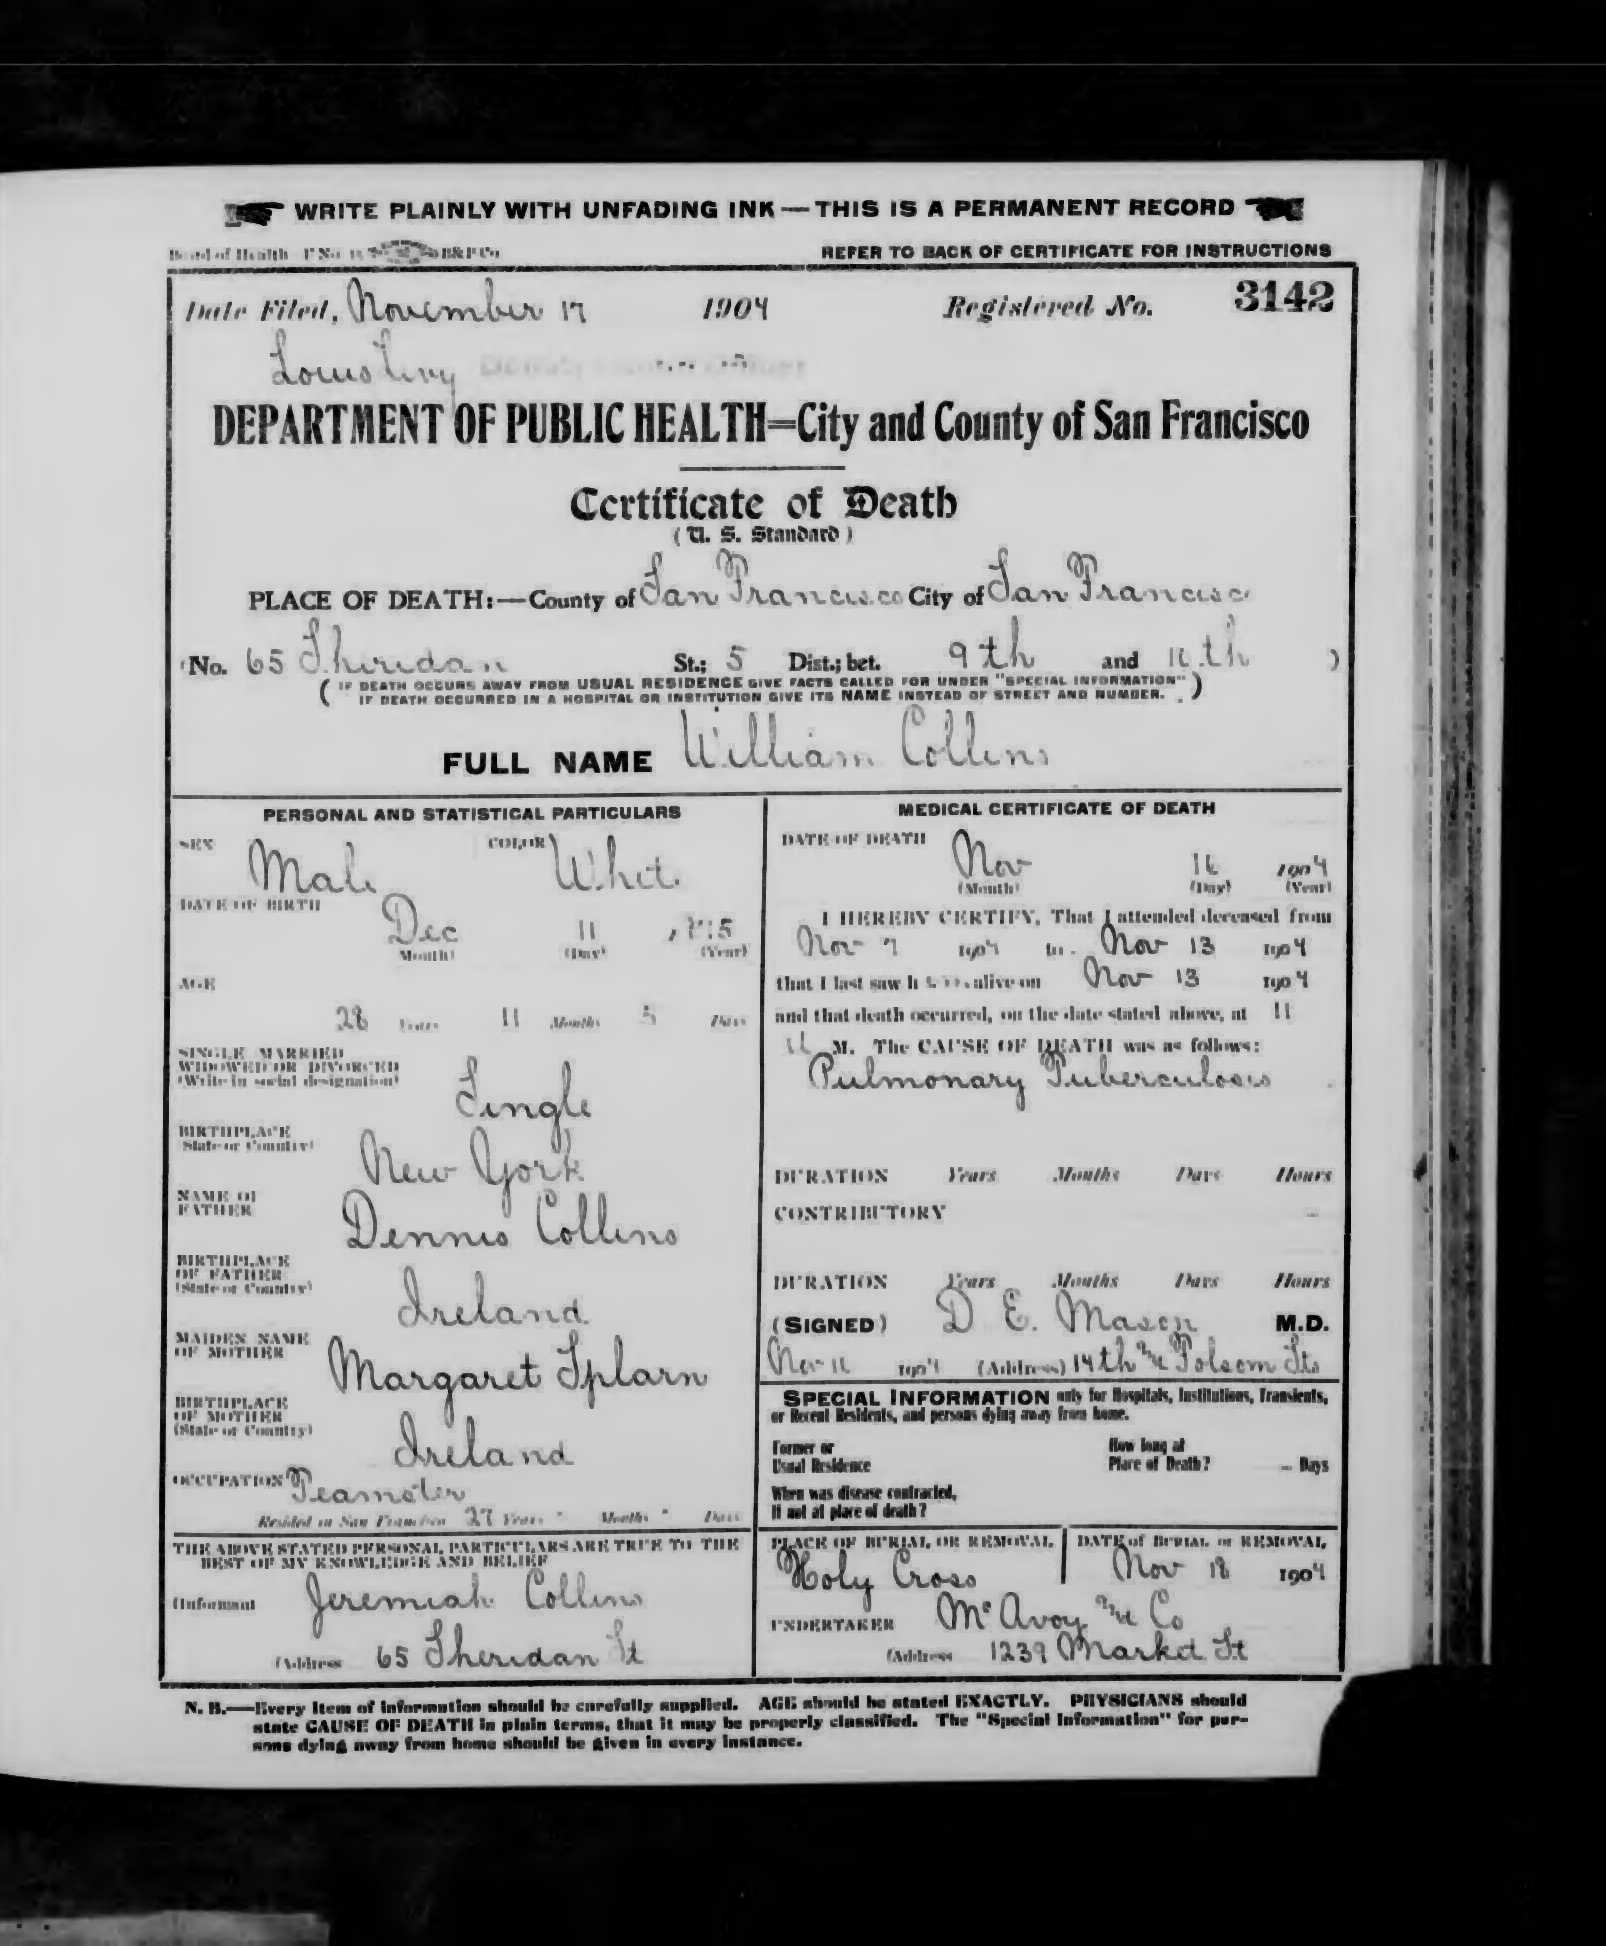 WRITE PLAINLY WITH UNFADING INK — THIS IS A PERMANENT RECORD
Board of Health B&P Co REFER TO BACK OF CERTIFICATE FOR INSTRUCTIONS
Date Filed, November 17 1904 Registered No. 3142
Louis Levy
DEPARTMENT OF PUBLIC HEALTH=City and County of San Francisco
Certificate of Death
( U. S. Standard )
PLACE OF DEATH:—County of San Francisco City of San Francisco
(No. 65 Sheridan St.; 5 Dist.; bet. 9th and 10th )
( IF DEATH OCCURS AWAY FROM USUAL RESIDENCE GIVE FACTS CALLED FOR UNDER "SPECIAL INFORMATION"
IF DEATH OCCURRED IN A HOSPITAL OR INSTITUTION GIVE ITS NAME INSTEAD OF STREET AND NUMBER. )
FULL NAME William Collins
PERSONAL AND STATISTICAL PARTICULARS
SEX Male COLOR White
DATE OF BIRTH Dec 11
(Month) (Day) (Year)
AGE
28 Years 11 Months 5 Days
SINGLE MARRIED
WIDOWED OR DIVORCED
(Write in social designation) Single
BIRTHPLACE
(State or Country) New York
NAME OF
FATHER Dennis Collins
BIRTHPLACE
OF FATHER
(State or Country) Ireland
MAIDEN NAME
OF MOTHER Margaret Splarn
BIRTHPLACE
OF MOTHER
(State or Country) Ireland
OCCUPATION Teamster
Resided in San Francisco 27 Years Months Days
THE ABOVE STATED PERSONAL PARTICULARS ARE TRUE TO THE
BEST OF MY KNOWLEDGE AND BELIEF
(Informant Jeremiah Collins
(Address 65 Sheridan St
MEDICAL CERTIFICATE OF DEATH
DATE OF DEATH Nov 16 1904
(Month) (Day) (Year)
I HEREBY CERTIFY, That I attended deceased from
Nov 7 1904 to Nov 13 1904
that I last saw h alive on Nov 13 1904
and that death occurred, on the date stated above, at 11
M. The CAUSE OF DEATH was as follows:
Pulmonary Tuberculosis
DURATION Years Months Days Hours
CONTRIBUTORY
DURATION Years Months Days Hours
(SIGNED) D E. Mason M.D.
Nov 16 1904 (Address) 14th & Folsom Sts
SPECIAL INFORMATION only for Hospitals, Institutions, Transients,
or Recent Residents, and persons dying away from home.
Former or
Usual Residence
How long at
Place of Death? Days
When was disease contracted,
If not at place of death?
PLACE OF BURIAL OR REMOVAL
Holy Cross
DATE of BURIAL or REMOVAL
Nov 18 1904
UNDERTAKER McAvoy & Co
(Address 1239 Market St
N. B.—Every item of information should be carefully supplied. AGE should be stated EXACTLY. PHYSICIANS should
state CAUSE OF DEATH in plain terms, that it may be properly classified. The "Special Information" for per-
sons dying away from home should be given in every instance.